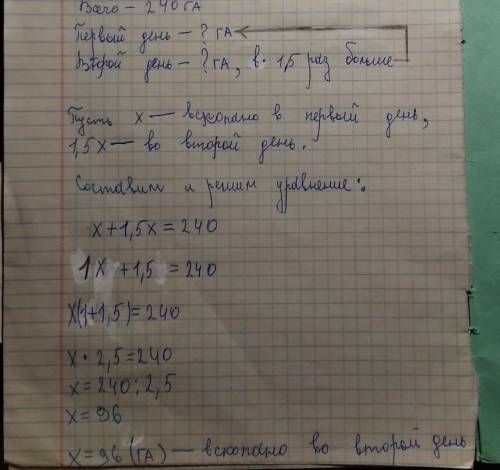 Всего – 240 ГА
Первый день – ? ГА
Второй день – ? ГА, в 1,5 раз больше
Пусть х — вскопано в первый день,
1,5х — во второй день.
Составим и решим уравнение:
х+1,5х=240
1х +1,5 =240
х(1+1,5)=240
х · 2,5=240
х=240:2,5
х=96
х=96 (ГА) — вскопано во второй день